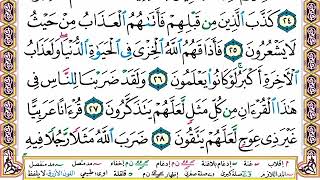 ٢٤ كَذَّبَ ٱلَّذِينَ مِن قَبۡلِهِمۡ فَأَتَىٰهُمُ ٱلۡعَذَابُ مِنۡ حَيۡثُ
لَا يَشۡعُرُونَ ٢٥ فَأَذَاقَهُمُ ٱللَّهُ ٱلۡخِزۡيَ فِي ٱلۡحَيَوٰةِ ٱلدُّنۡيَاۖ وَلَعَذَابُ
ٱلۡأٓخِرَةِ أَكۡبَرُۚ لَوۡ كَانُواْ يَعۡلَمُونَ ٢٦ وَلَقَدۡ ضَرَبۡنَا لِلنَّاسِ فِي
هَٰذَا ٱلۡقُرۡءَانِ مِن كُلِّ مَثَلٖ لَّعَلَّهُمۡ يَتَذَكَّرُونَ ٢٧ قُرۡءَانًا عَرَبِيًّا
غَيۡرَ ذِي عِوَجٖ لَّعَلَّهُمۡ يَتَّقُونَ ٢٨ ضَرَبَ ٱللَّهُ مَثَلٗا رَّجُلٗا فِيهِ